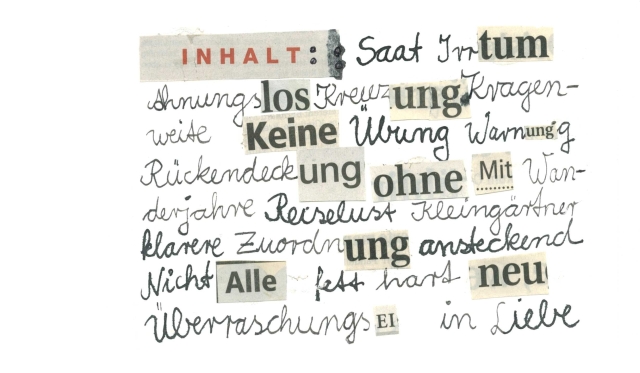 INHALT: Saat Irrtum
Ahnungslos Kreuzung Kragen-
weite Keine Übung Warnung
Rückendeckung ohne Mit Wan-
derjahre Reiselust Kleingärtner
klarere Zuordnung ansteckend
Nicht Alle fett hart neu
ÜberraschungsEI in Liebe